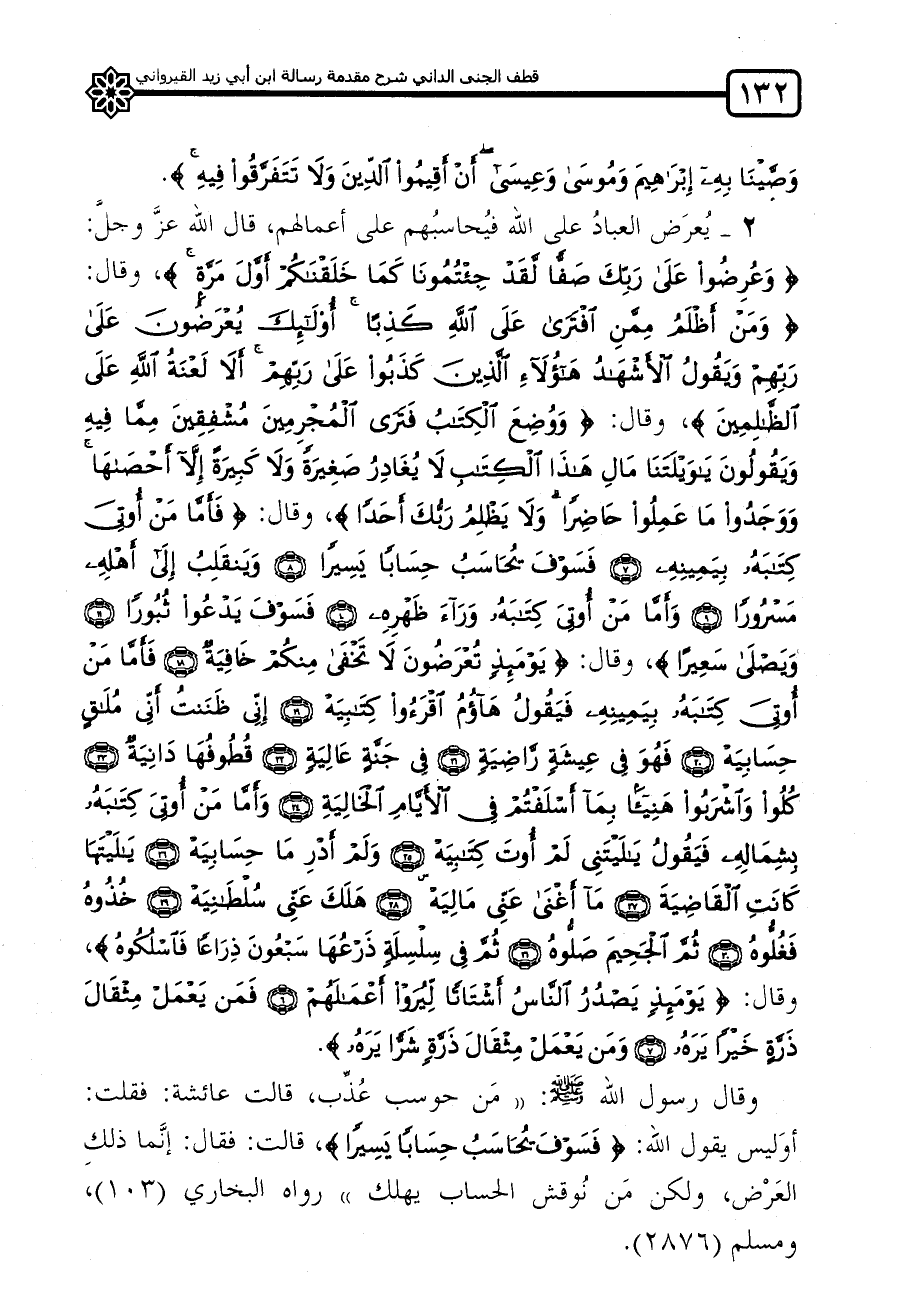 ١٣٢
قطف الجنى الداني شرح مقدمة رسالة ابن أبي زيد القيرواني
وَصَّيْنَا بِهِۦٓ إِبْرَٰهِيمَ وَمُوسَىٰ وَعِيسَىٰٓ ۖ أَنْ أَقِيمُوا۟ ٱلدِّينَ وَلَا تَتَفَرَّقُوا۟ فِيهِ ۚ ﴾.
٢ ـ يُعرَض العبادُ على الله فيُحاسبُهم على أعمالهم، قال الله عزَّ وجلَّ:
﴿ وَعُرِضُوا۟ عَلَىٰ رَبِّكَ صَفًّا لَّقَدْ جِئْتُمُونَا كَمَا خَلَقْنَٰكُمْ أَوَّلَ مَرَّةٍۭ ۚ ﴾، وقال:
﴿ وَمَنْ أَظْلَمُ مِمَّنِ ٱفْتَرَىٰ عَلَى ٱللَّهِ كَذِبًا ۚ أُو۟لَٰٓئِكَ يُعْرَضُونَ عَلَىٰ
رَبِّهِمْ وَيَقُولُ ٱلْأَشْهَٰدُ هَٰٓؤُلَآءِ ٱلَّذِينَ كَذَبُوا۟ عَلَىٰ رَبِّهِمْ ۚ أَلَا لَعْنَةُ ٱللَّهِ عَلَى
ٱلظَّٰلِمِينَ ﴾، وقال: ﴿ وَوُضِعَ ٱلْكِتَٰبُ فَتَرَى ٱلْمُجْرِمِينَ مُشْفِقِينَ مِمَّا فِيهِ
وَيَقُولُونَ يَٰوَيْلَتَنَا مَالِ هَٰذَا ٱلْكِتَٰبِ لَا يُغَادِرُ صَغِيرَةً وَلَا كَبِيرَةً إِلَّآ أَحْصَىٰهَا ۚ
وَوَجَدُوا۟ مَا عَمِلُوا۟ حَاضِرًا ۗ وَلَا يَظْلِمُ رَبُّكَ أَحَدًا ﴾، وقال: ﴿ فَأَمَّا مَنْ أُوتِىَ
كِتَٰبَهُۥ بِيَمِينِهِۦ ۝٧ فَسَوْفَ يُحَاسَبُ حِسَابًا يَسِيرًا ۝٨ وَيَنقَلِبُ إِلَىٰٓ أَهْلِهِۦ
مَسْرُورًا ۝٩ وَأَمَّا مَنْ أُوتِىَ كِتَٰبَهُۥ وَرَآءَ ظَهْرِهِۦ ۝١٠ فَسَوْفَ يَدْعُوا۟ ثُبُورًا ۝١١
وَيَصْلَىٰ سَعِيرًا ﴾، وقال: ﴿ يَوْمَئِذٍ تُعْرَضُونَ لَا تَخْفَىٰ مِنكُمْ خَافِيَةٌ ۝١٨ فَأَمَّا مَنْ
أُوتِىَ كِتَٰبَهُۥ بِيَمِينِهِۦ فَيَقُولُ هَآؤُمُ ٱقْرَءُوا۟ كِتَٰبِيَهْ ۝١٩ إِنِّى ظَنَنتُ أَنِّى مُلَٰقٍ
حِسَابِيَهْ ۝٢٠ فَهُوَ فِى عِيشَةٍ رَّاضِيَةٍ ۝٢١ فِى جَنَّةٍ عَالِيَةٍ ۝٢٢ قُطُوفُهَا دَانِيَةٌ ۝٢٣
كُلُوا۟ وَٱشْرَبُوا۟ هَنِيٓـًٔۢا بِمَآ أَسْلَفْتُمْ فِى ٱلْأَيَّامِ ٱلْخَالِيَةِ ۝٢٤ وَأَمَّا مَنْ أُوتِىَ كِتَٰبَهُۥ
بِشِمَالِهِۦ فَيَقُولُ يَٰلَيْتَنِى لَمْ أُوتَ كِتَٰبِيَهْ ۝٢٥ وَلَمْ أَدْرِ مَا حِسَابِيَهْ ۝٢٦ يَٰلَيْتَهَا
كَانَتِ ٱلْقَاضِيَةَ ۝٢٧ مَآ أَغْنَىٰ عَنِّى مَالِيَهْ ۜ ۝٢٨ هَلَكَ عَنِّى سُلْطَٰنِيَهْ ۝٢٩ خُذُوهُ
فَغُلُّوهُ ۝٣٠ ثُمَّ ٱلْجَحِيمَ صَلُّوهُ ۝٣١ ثُمَّ فِى سِلْسِلَةٍ ذَرْعُهَا سَبْعُونَ ذِرَاعًا فَٱسْلُكُوهُ ﴾،
وقال: ﴿ يَوْمَئِذٍ يَصْدُرُ ٱلنَّاسُ أَشْتَاتًا لِّيُرَوْا۟ أَعْمَٰلَهُمْ ۝٦ فَمَن يَعْمَلْ مِثْقَالَ
ذَرَّةٍ خَيْرًا يَرَهُۥ ۝٧ وَمَن يَعْمَلْ مِثْقَالَ ذَرَّةٍ شَرًّا يَرَهُۥ ﴾.
وقال رسول الله ﷺ: « مَن حوسب عُذِّب، قالت عائشة: فقلت:
أوَليس يقول الله: ﴿ فَسَوْفَ يُحَاسَبُ حِسَابًا يَسِيرًا ﴾، قالت: فقال: إنَّما ذلكِ
العَرْض، ولكن مَن نُوقش الحساب يهلك » رواه البخاري (١٠٣)،
ومسلم (٢٨٧٦).